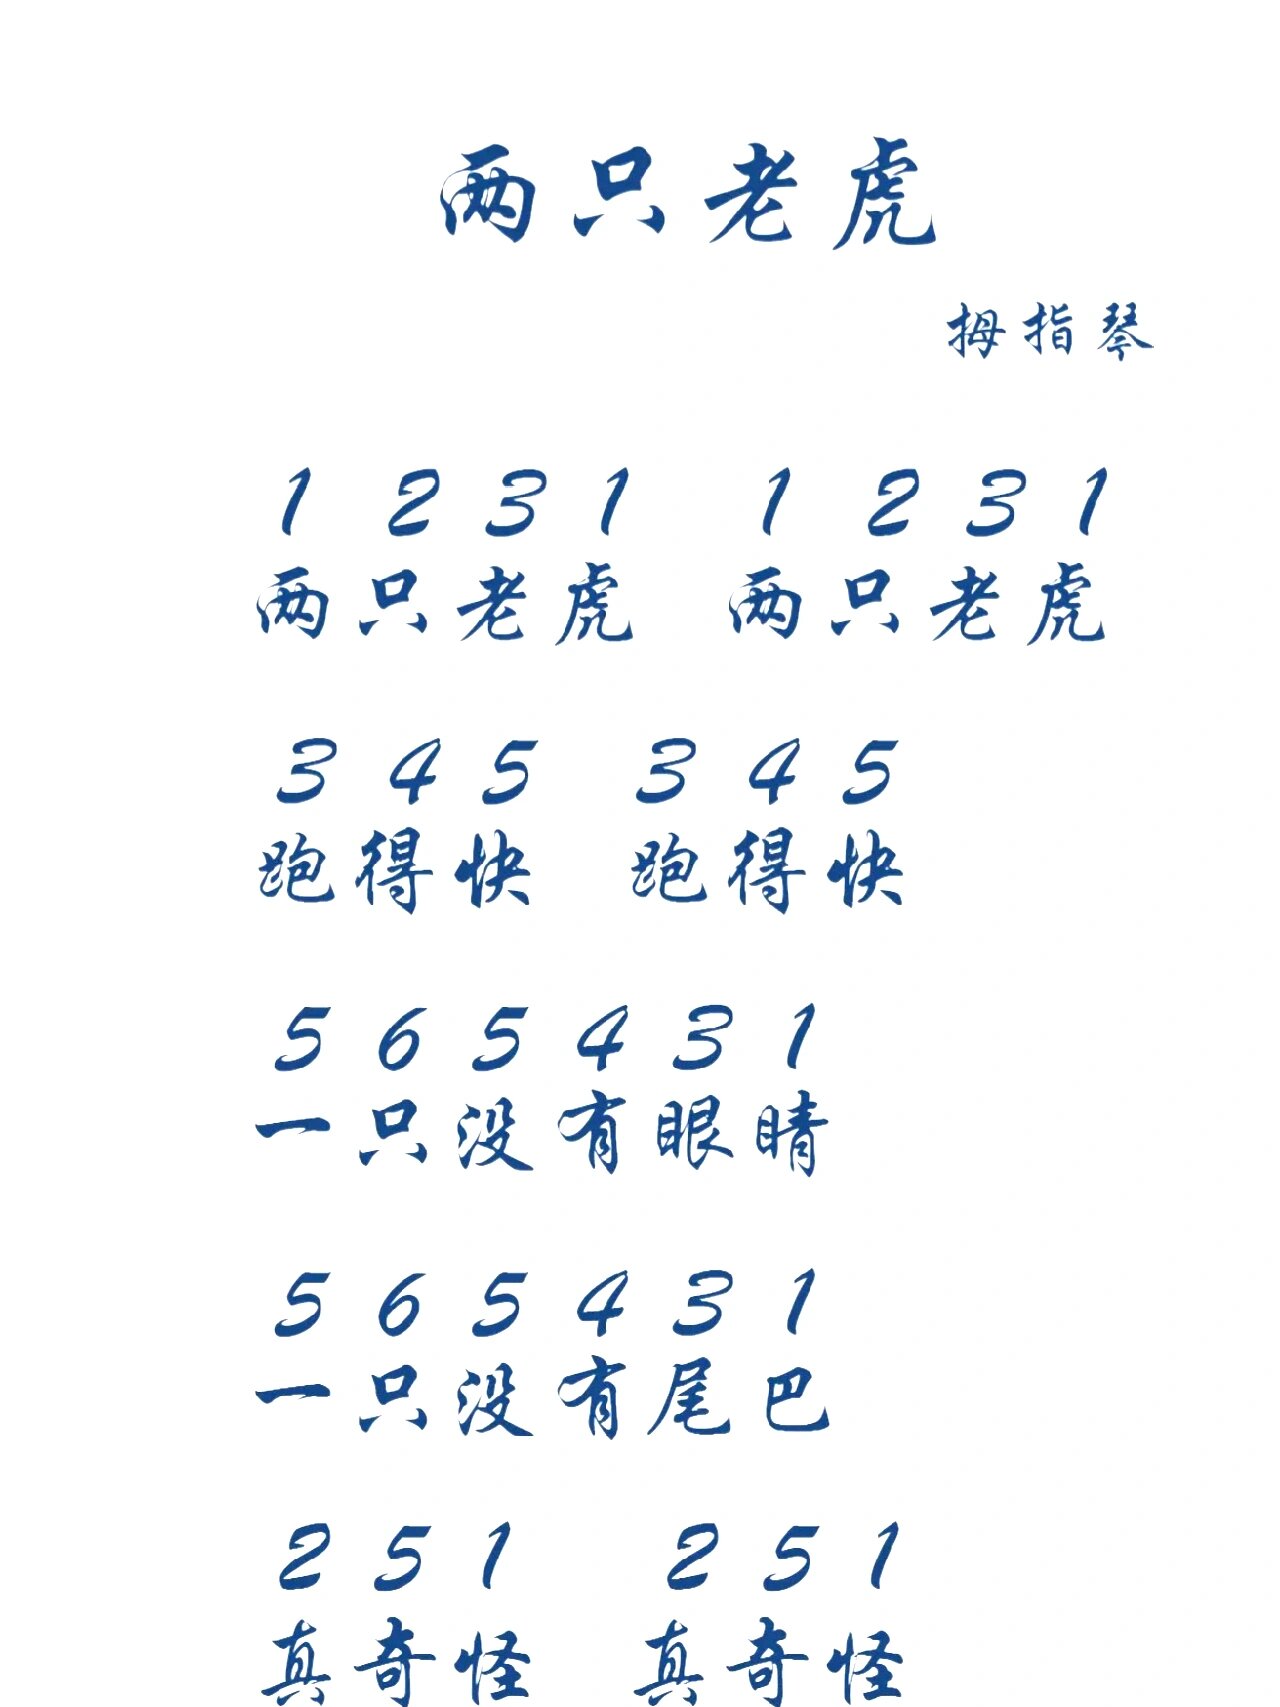 两只老虎
拇指琴
1 2 3 1 1 2 3 1
两只老虎 两只老虎
3 4 5 3 4 5
跑得快 跑得快
5 6 5 4 3 1
一只没有眼睛
5 6 5 4 3 1
一只没有尾巴
2 5 1 2 5 1
真奇怪 真奇怪